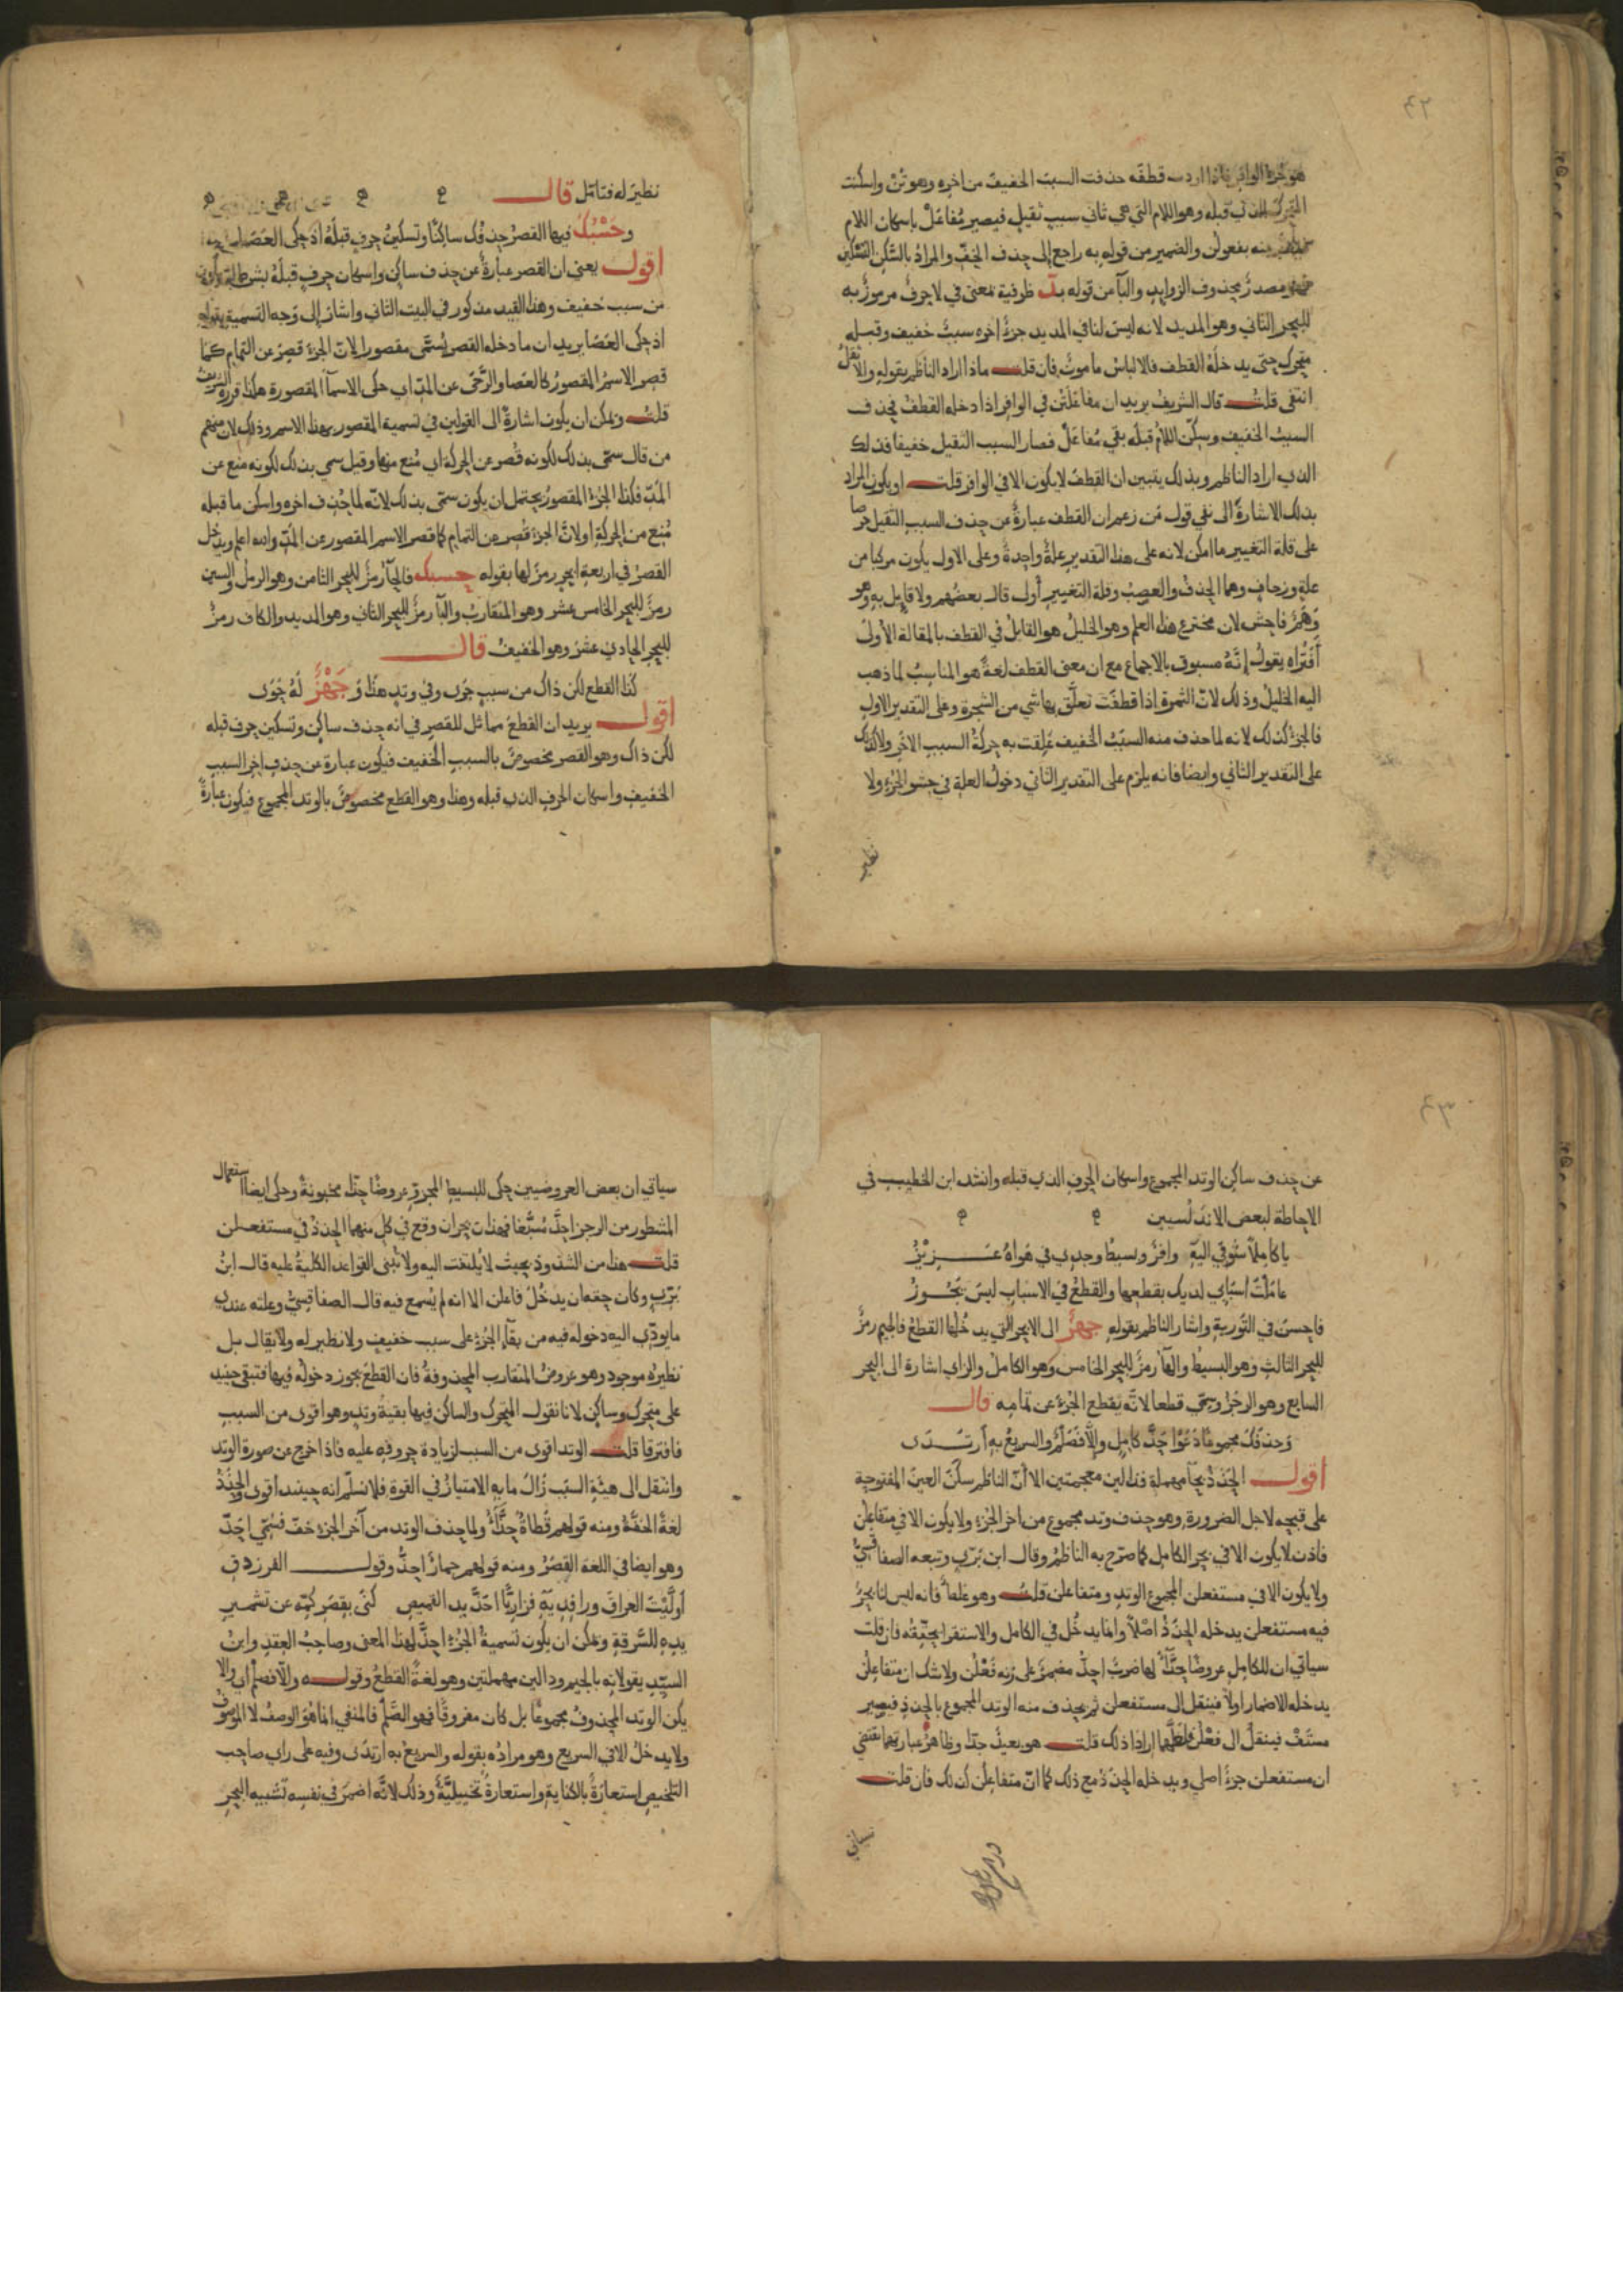 ٢٢
هو جزء الوافر فاذا اردت قطفه حذفت السبب الخفيف من اخره وهو تن واسكنت
المتحرك الذي قبله وهو اللام التي هي ثاني سبب ثقيل فيصير مفاعل باسكان اللام
منه بفعولن والضمير من قوله به راجع الى حذف الخف والمراد بالسكن التسكين
فهو مصدر محذوف الزوايد والبآ من قوله بد ظرفية بمعنى في لا حرف مرموز به
للبحر الثاني وهو المديد لانه ليس لنا في المديد جزء اخره سبب خفيف وقبله
متحرك حتى يدخله القطف فالالباس مامون فان قلت ماذا اراد الناظم بقوله والاثقل
انتفى قلت قال الشريف يريد ان مفاعلتن في الوافر اذا دخله القطف فحذف
السبب الخفيف وسكن اللام قبله بقي مفاعل فصار السبب الثقيل خفيفا فذلك
الذي اراد الناظم وبذلك يتبين ان القطف لا يكون الا في الوافر قلت او يكون المراد
بذلك الاشارة الى نفي قول من زعم ان القطف عبارة عن حذف السبب الثقيل حرصا
على قلة التغيير ما امكن لانه على هذا التقدير علة واحدة وعلى الاول يكون مركبا من
علة وزحاف وهما الحذف والعصب وقلة التغيير أولى قال بعضهم ولا قايل به وهو
وهم فاحش لان مخترع هذا العلم وهو الخليل هو القايل في القطف بالمقالة الأولى
أفتراه يقول إنه مسبوق بالاجماع مع ان معنى القطف لغة هو المناسب لما ذهب
اليه الخليل وذلك لان الثمرة اذا قطفت تعلق بها شي من الشجرة وعلى التقدير الاول
فالجزء كذلك لانه لما حذف منه السبب الخفيف علقت به حركة السبب الاخر ولا كذلك
على التقدير الثاني وايضا فانه يلزم على التقدير الثاني دخول العلة في حشو الجزء ولا
نظير
نظير له فتامل قال
وحسبك فيها القصر حذفك ساكنا وتسكين حرف قبله اذ حكى العصا
اقول يعني ان القصر عبارة عن حذف ساكن واسكان حرف قبله بشرط ان يكون
من سبب خفيف وهذا القيد مذكور في البيت الثاني واشار الى وجه التسمية بقوله
اذ حكى العصا يريد ان ما دخله القصر يسمى مقصورا لان الجزء قصر عن التمام كما
قصر الاسم المقصور كالعصا والرحى عن المد اي حكى الاسمآ المقصورة هكذا قرره الشريف
قلت ويمكن ان يكون اشارة الى القولين في تسمية المقصور بهذا الاسم وذلك لان منهم
من قال سمى بذلك لكونه قصر عن الحركة اي منع منها وقيل سمي بذلك لكونه منع عن
المد فكذا الجزء المقصور يحتمل ان يكون سمى بذلك لانه لما حذف اخره واسكن ما قبله
منع من الحركة او لان الجزء قصر عن التمام كما قصر الاسم المقصور عن المد والله اعلم ويدخل
القصر في اربعة ابحر رمز لها بقوله حسبك فالحآ رمز للبحر الثامن وهو الرمل والسين
رمز للبحر الخامس عشر وهو المتقارب والبآ رمز للبحر الثاني وهو المديد والكاف رمز
للبحر الحادي عشر وهو الخفيف قال
كذا القطع لكن ذاك من سبب جرى وفي وتد هذا و جهز له حوى
اقول يريد ان القطع مماثل للقصر في انه حذف ساكن وتسكين حرف قبله
لكن ذاك وهو القصر مخصوص بالسبب الخفيف فيكون عبارة عن حذف اخر السبب
الخفيف واسكان الحرف الذي قبله وهذا وهو القطع مخصوص بالوتد المجموع فيكون عبارة
٢٣
عن حذف ساكن الوتد المجموع واسكان الحرف الذي قبله وانشد ابن الخطيب في
الاحاطة لبعض الاندلسيين
يا كاملا شوقي اليه وافر وبسيط وجدي في هواه عزيز
عاملت اسبابي لديك بقطعها والقطع في الاسباب ليس يجوز
فاحسن في التورية واشار الناظم بقوله جهز الى الابحر التي يدخلها القطع فالجيم رمز
للبحر الثالث وهو البسيط والهآ رمز للبحر الخامس وهو الكامل والزاي اشارة الى البحر
السابع وهو الرجز وسمي قطعا لانه يقطع الجزء عن تمامه قال
وحذفك مجموعا دعوا حذ كامل وإلا فصلم والسريع به ارتدى
اقول الحذذ بحآ مهملة فذالين معجمتين الا أن الناظم سكن العين المفتوحة
على قبحه لاجل الضرورة وهو حذف وتد مجموع من اخر الجزء ولا يكون الا في متفاعلن
فاذن لا يكون الا في بحر الكامل كما صرح به الناظم وقال ابن بري وتبعه الصفاقسي
ولا يكون الا في مستفعلن المجموع الوتد ومتفاعلن قلت وهو غلط فانه ليس لنا بحر
فيه مستفعلن يدخله الحذذ اصلا وانما يدخل في الكامل والاستقرا يحققه فان قلت
سياتي ان للكامل عروضا حذآ لها ضرب احذ مضمر على زنه فعلن ولا شك ان متفاعلن
يدخله الاضمار اولا فينقل الى مستفعلن ثم يحذف منه الوتد المجموع بالحذذ فيصير
مستف فينقل الى فعلن فلعلهما ارادا ذلك قلت هو بعيد جدا وظاهر عبارتهما يقتضي
ان مستفعلن جزء اصلي ويدخله الحذذ مع ذلك كما ان متفاعلن كذلك فان قلت
سياتي
سياتي ان بعض العروضيين حكى للبسيط المجزو عروضا حذآ مخبونة وحكى ايضا استعمال
المشطور من الرجز احذ مسبغا فهذان بحران وقع في كل منهما الحذذ في مستفعلن
قلت هذا من الشذوذ بحيث لا يلتفت اليه ولا تبنى القواعد الكلية عليه قال ابن
بري وكان حقه ان يدخل فاعلن الا انه لم يسمع فيه قال الصفاقسي وعلته عندي
ما يودي اليه دخوله فيه من بقآ الجزء على سبب خفيف ولا نظير له ولا يقال بل
نظيره موجود وهو عروض المتقارب المحذوفة فان القطع يجوز دخوله فيها فتبقى حينيذ
على متحرك وساكن لانا نقول المتحرك والساكن فيها بقية وتد وهو اقوى من السبب
فافترقا قلت الوتد اقوى من السبب لزيادة حروفه عليه فاذا خرج عن صورة الوتد
وانتقل الى هيئة السبب زال ما به الامتياز في القوة فلا نسلم انه حينيذ أقوى والحذذ
لغة الخفة ومنه قولهم قطاة حذآ ولما حذف الوتد من آخر الجزء خف فسمي احذ
وهو ايضا في اللغة القصر ومنه قولهم حمار احذ وقول الفرزدق
أوليت العراق ورافديه فزاريا احذ يد القميص كنى بقصر كمه عن تشمير
يده للسرقة ويمكن ان يكون تسمية الجزء احذ لهذا المعنى وصاحب العقد وابن
السيد يقولانه بالجيم ودالين مهملتين وهو لغة القطع وقوله والا فصلم أي والا
يكن الوتد المحذوف مجموعا بل كان مفروقا فهو الصلم فالمنفي انما هو الوصف لا الموصوف
ولا يدخل الا في السريع وهو مراده بقوله والسريع به ارتدى وفيه على راي صاحب
التلخيص استعارة بالكناية واستعارة تخييلية وذلك لانه اضمر في نفسه تشبيه البحر